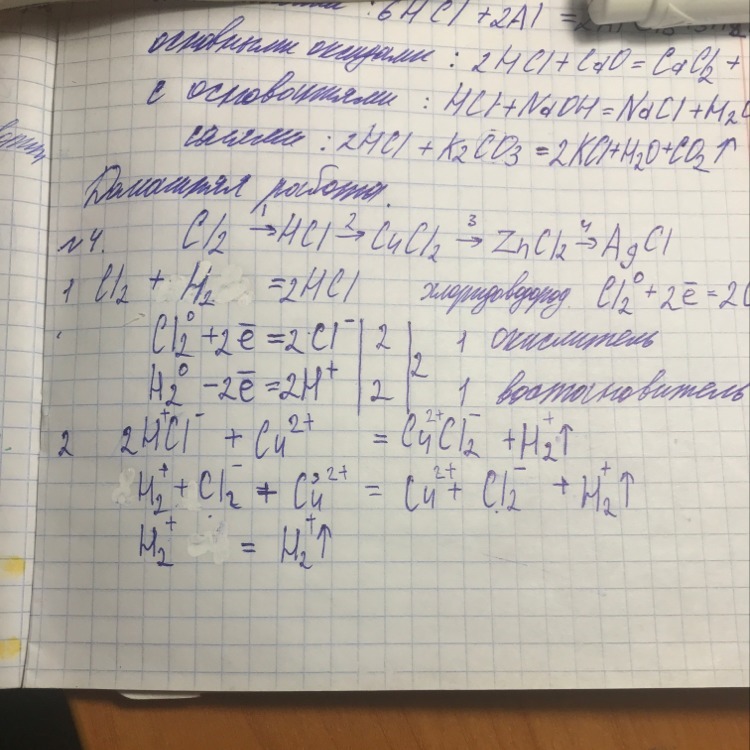 : 6HCl + 2Al =
основными оксидами : 2HCl + CaO = CaCl₂ +
с основаниями : HCl + NaOH = NaCl + H₂O
солями : 2HCl + K₂CO₃ = 2KCl + H₂O + CO₂↑
Домашняя работа.
№4. Cl₂ →¹ HCl →² CuCl₂ →³ ZnCl₂ →⁴ AgCl
1 Cl₂ + H₂ = 2HCl хлоридоводород Cl₂⁰ + 2ē = 2
Cl₂⁰ + 2ē = 2Cl⁻ | 2 | 2 1 окислитель
H₂⁰ - 2ē = 2H⁺ | 2 | 1 востановитель
2 2H⁺Cl⁻ + Cu²⁺ = Cu²⁺Cl₂⁻ + H₂⁺↑
H₂⁺ + Cl₂⁻ + Cu²⁺ = Cu²⁺ + Cl₂⁻ + H₂⁺↑
H₂⁺ = H₂⁺↑